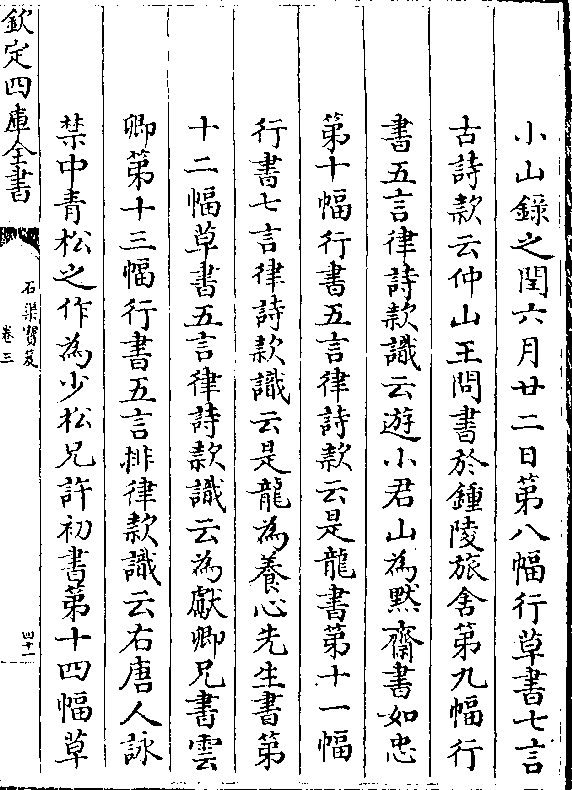 小山錄之閏六月廿二日第八幅行草書七言
古詩款云仲山王問書於鍾陵旅舍第九幅行
書五言律詩款識云遊小君山為默齋書如忠
第十幅行書五言律詩款云是龍書第十一幅
行書七言律詩款識云是龍為養心先生書第
十二幅草書五言律詩款識云為獻卿兄書雲
卿第十三幅行書五言排律款識云右唐人詠
禁中青松之作為少松兄許初書第十四幅草
欽定四庫全書
石渠寶笈
卷三
四十一